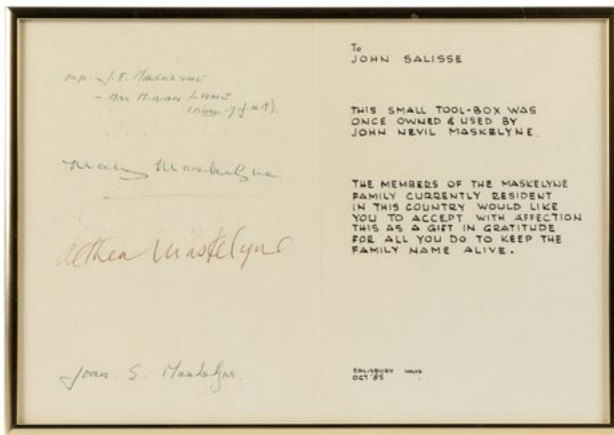 p.p. J. E. MASKELYNE
- Mrs MIRIAN LANE
Mary Maskelyne
Althea Maskelyne
Joan S. Maskelyne.
To
JOHN SALISSE
THIS SMALL TOOL-BOX WAS
ONCE OWNED & USED BY
JOHN NEVIL MASKELYNE.
THE MEMBERS OF THE MASKELYNE
FAMILY CURRENTLY RESIDENT
IN THIS COUNTRY WOULD LIKE
YOU TO ACCEPT WITH AFFECTION
THIS AS A GIFT IN GRATITUDE
FOR ALL YOU DO TO KEEP THE
FAMILY NAME ALIVE.
SALISBURY
OCT '85